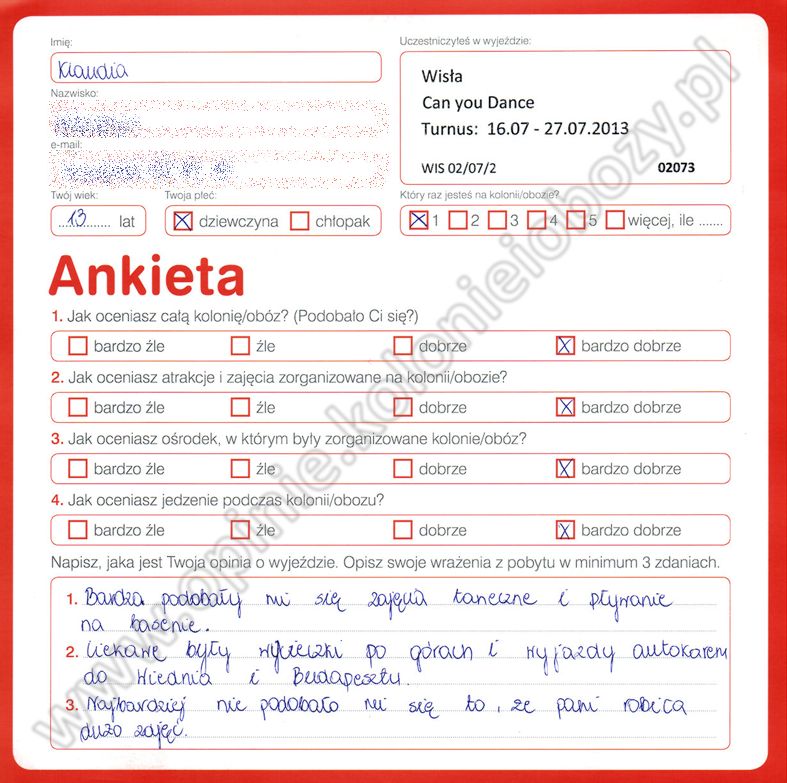 Imię:
Klaudia
Nazwisko:
e-mail:
Twój wiek:
13 lat
Twoja płeć:
dziewczyna chłopak
Uczestniczyłeś w wyjeździe:
Wisła
Can you Dance
Turnus: 16.07 - 27.07.2013
WIS 02/07/2 02073
Który raz jesteś na kolonii/obozie?
1 2 3 4 5 więcej, ile .......
Ankieta
1. Jak oceniasz całą kolonię/obóz? (Podobało Ci się?)
bardzo źle źle dobrze bardzo dobrze
2. Jak oceniasz atrakcje i zajęcia zorganizowane na kolonii/obozie?
bardzo źle źle dobrze bardzo dobrze
3. Jak oceniasz ośrodek, w którym były zorganizowane kolonie/obóz?
bardzo źle źle dobrze bardzo dobrze
4. Jak oceniasz jedzenie podczas kolonii/obozu?
bardzo źle źle dobrze bardzo dobrze
Napisz, jaka jest Twoja opinia o wyjeździe. Opisz swoje wrażenia z pobytu w minimum 3 zdaniach.
1. Bardzo podobały mi się zajęcia taneczne i pływanie
na basenie.
2. Ciekawe były wycieczki po górach i wyjazdy autokarem
do Wiednia i Budapesztu.
3. Najbardziej nie podobało mi się to, że pani robiła
dużo zdjęć.
www.opinie.kolonieiobozy.pl